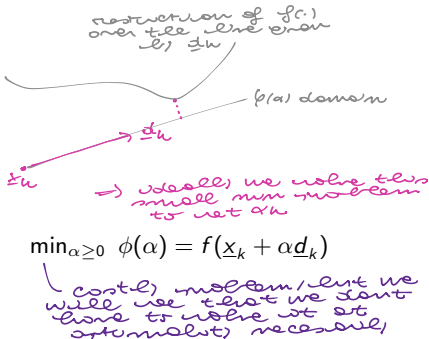 restriction of f(·)
over the line given
by d_k
φ(α) domain
d_k
x_k
→ ideally we solve this
small min problem
to get α_k
min_{α≥0} φ(α) = f(x_k + αd_k)
costly problem, but we
will see that we dont
have to solve it at
optimality necessarily